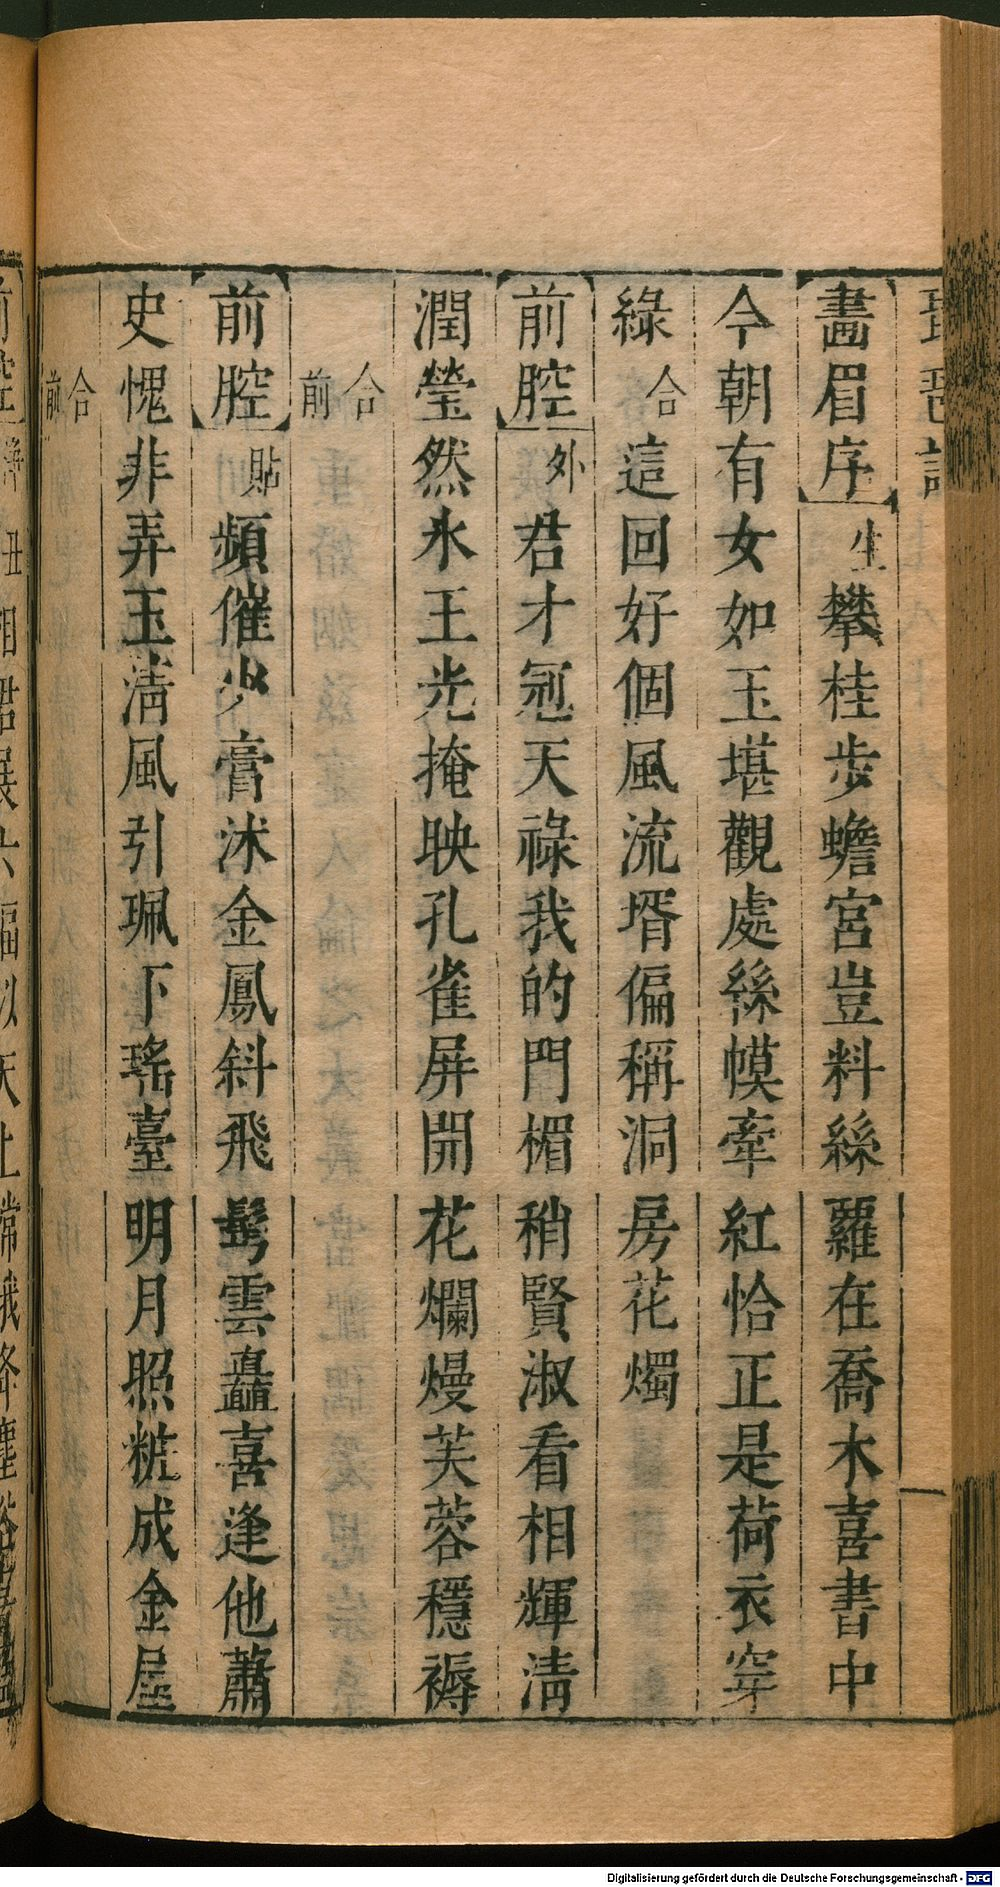 琵琶記
畫眉序 生 攀桂步蟾宮豈料絲蘿在喬木喜書中
今朝有女如玉堪觀處絲幙牽紅恰正是荷衣穿
綠 合 這回好個風流壻偏稱洞房花燭
前腔 外 君才冠天祿我的門楣稍賢淑看相輝清
潤瑩然氷玉光掩映孔雀屏開花爛熳芙蓉穩褥
合前
前腔 貼 頻催少膏沐金鳳斜飛鬂雲矗喜逢他蕭
史愧非弄玉淸風引珮下瑤臺明月照粧成金屋
合前
Digitalisierung gefördert durch die Deutsche Forschungsgemeinschaft - DFG